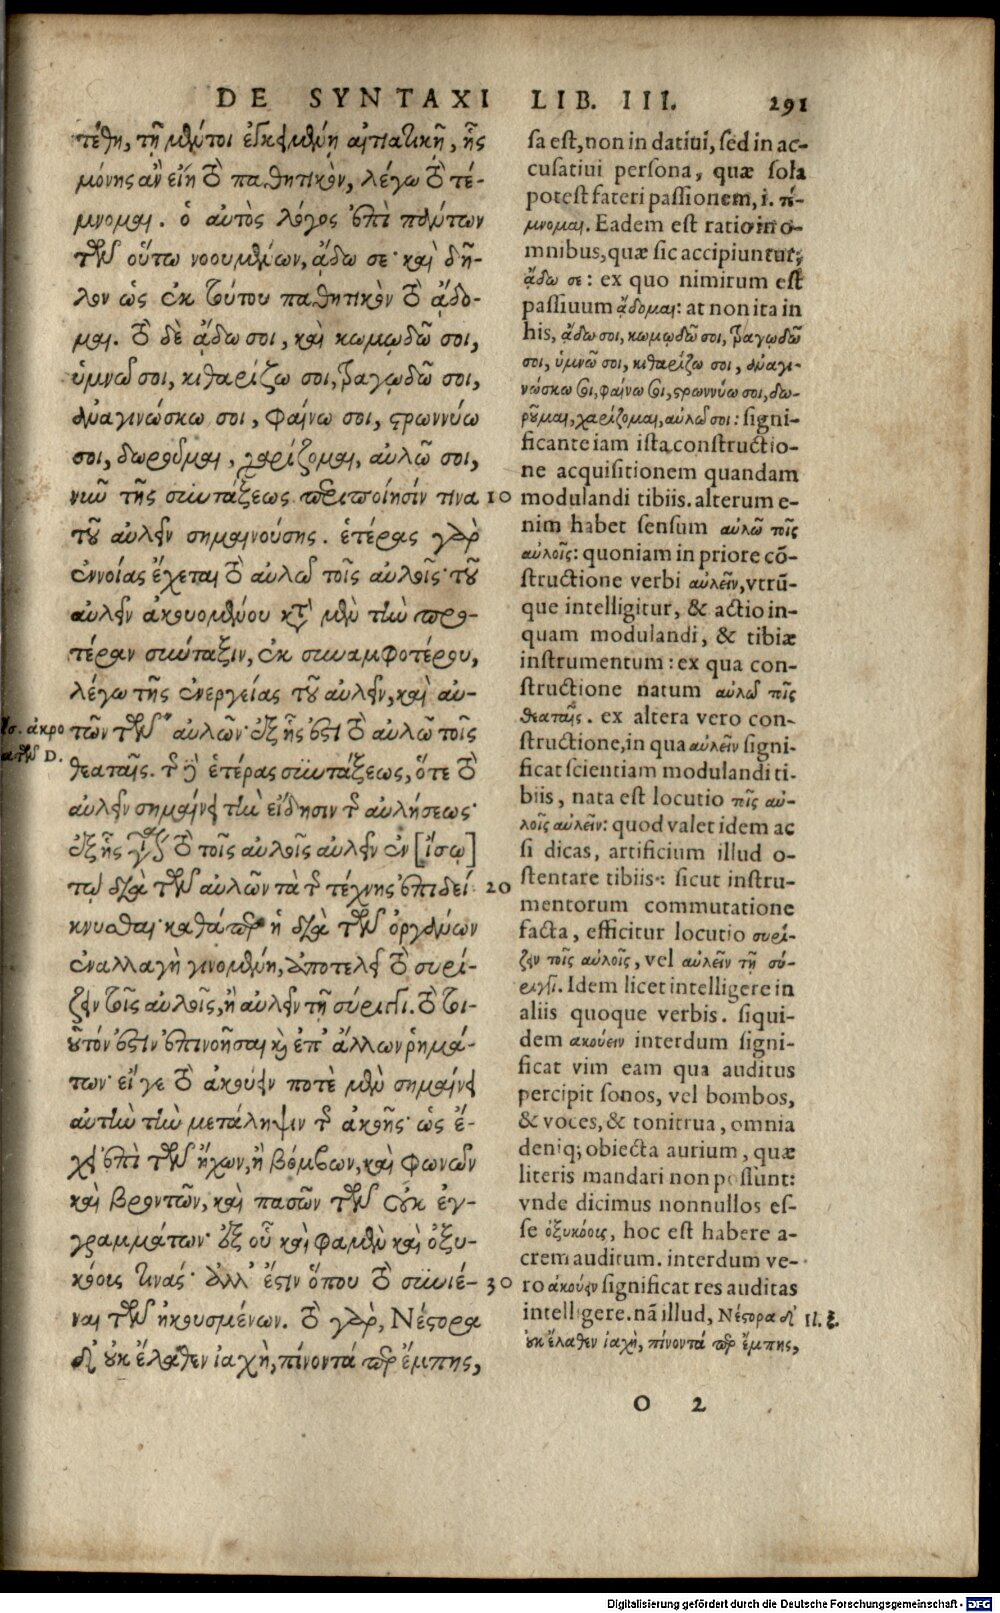 DE SYNTAXI LIB. III. 291
τέθη, τῇ μέντοι ἐγκειμένῃ αἰτιατικῇ, ἧς
μόνης ἂν εἴη τὸ παθητικὸν, λέγω τὸ τέ-
μνομαι. ὁ αὐτὸς λόγος ἐπὶ πάντων
τῶν οὕτω νοουμένων, ᾄδω σε· καὶ δῆ-
λον ὡς ἐκ τούτου παθητικὸν τὸ ᾄδο-
μαι. τὸ δὲ ᾄδω σοι, καὶ κωμῳδῶ σοι,
ὑμνῶ σοι, κιθαρίζω σοι, τραγῳδῶ σοι,
ἀναγινώσκω σοι, φαίνω σοι, στρωννύω
σοι, δωροῦμαι, χαρίζομαι, αὐλῶ σοι,
νῦν τῆς συντάξεως περιποίησίν τινα 10
τοῦ αὐλεῖν σημαινούσης. ἑτέρας γὰρ
ἐννοίας ἔχεται τὸ αὐλῶ τοῖς αὐλοῖς· τοῦ
αὐλεῖν ἀκουομένου κατὰ μὲν τὴν προ-
τέραν σύνταξιν, ἐκ συναμφοτέρου,
λέγω τῆς ἐνεργείας τοῦ αὐλεῖν, καὶ αὐ-
τῶν τῶν * αὐλῶν· ἐξ ἧς ἐστὶ τὸ αὐλῶ τοῖς
θεαταῖς. τῆς δὲ ἑτέρας συντάξεως, ὅτε τὸ
αὐλεῖν σημαίνει τὴν εἴδησιν τῆς αὐλήσεως·
ἐξ ἧς τὸ τοῖς αὐλοῖς αὐλεῖν ἐν [ἴσῳ]
τῷ διὰ τῶν αὐλῶν τὰ τῆς τέχνης ἐπιδεί- 20
κνυσθαι· καθάπερ ἡ διὰ τῶν ὀργάνων
ἐναλλαγὴ γινομένη, ἀποτελεῖ τὸ συρί-
ζειν τοῖς αὐλοῖς, ἢ αὐλεῖν τῇ σύριγγι. τὸ τοι-
οῦτόν ἐστιν ἐπινοῆσαι καὶ ἐπ' ἄλλων ῥημά-
των· εἴγε τὸ ἀκούειν ποτὲ μὲν σημαίνει
αὐτὴν τὴν μετάληψιν τῆς ἀκοῆς· ὡς ἔ-
χει ἐπὶ τῶν ἤχων, ἢ βόμβων, καὶ φωνῶν
καὶ βροντῶν, καὶ πασῶν τῶν οὐκ ἐγ-
γραμμάτων· ἐξ οὗ καὶ φαμὲν καὶ ὀξυ-
κόοις τινάς· ἀλλ' ἔστιν ὅπου τὸ συνιέ- 30
ναι τῶν ἠκουσμένων. τὸ γὰρ, Νέστορα
δ' οὐκ ἔλαθεν ἰαχὴ, πίνοντά περ ἔμπης,
ἴσ. ἀκρο
ατῶν D.
sa est, non in datiui, sed in ac-
cusatiui persona, quæ sola
potest fateri passionem, i. τέ-
μνομαι. Eadem est ratio in o-
mnibus, quæ sic accipiuntur,
ᾄδω σε: ex quo nimirum est
passiuum ᾄδομαι: at non ita in
his, ᾄδω σοι, κωμῳδῶ σοι, τραγῳδῶ
σοι, ὑμνῶ σοι, κιθαρίζω σοι, ἀναγι-
νώσκω σοι, φαίνω σοι, στρωννύω σοι, δω-
ροῦμαι, χαρίζομαι, αὐλῶ σοι: signi-
ficante iam ista constructio-
ne acquisitionem quandam
modulandi tibiis. alterum e-
nim habet sensum αὐλῶ τοῖς
αὐλοῖς: quoniam in priore cō-
structione verbi αὐλεῖν, vtrū-
que intelligitur, & actio in-
quam modulandi, & tibiæ
instrumentum: ex qua con-
structione natum αὐλῶ τοῖς
θεαταῖς. ex altera vero con-
structione, in qua αὐλεῖν signi-
ficat scientiam modulandi ti-
biis, nata est locutio τοῖς αὐ-
λοῖς αὐλεῖν: quod valet idem ac
si dicas, artificium illud o-
stentare tibiis: sicut instru-
mentorum commutatione
facta, efficitur locutio συρί-
ζειν τοῖς αὐλοῖς, vel αὐλεῖν τῇ σύ-
ριγγι. Idem licet intelligere in
aliis quoque verbis. siqui-
dem ἀκούειν interdum signi-
ficat vim eam qua auditus
percipit sonos, vel bombos,
& voces, & tonitrua, omnia
deniq; obiecta aurium, quæ
literis mandari non possunt:
vnde dicimus nonnullos es-
se ὀξυκόοις, hoc est habere a-
crem auditum. interdum ve-
ro ἀκούειν significat res auditas
intelligere. nā illud, Νέστορα δ' Il. ξ.
οὐκ ἔλαθεν ἰαχὴ, πίνοντά περ ἔμπης,
O 2
Digitalisierung gefördert durch die Deutsche Forschungsgemeinschaft - DFG